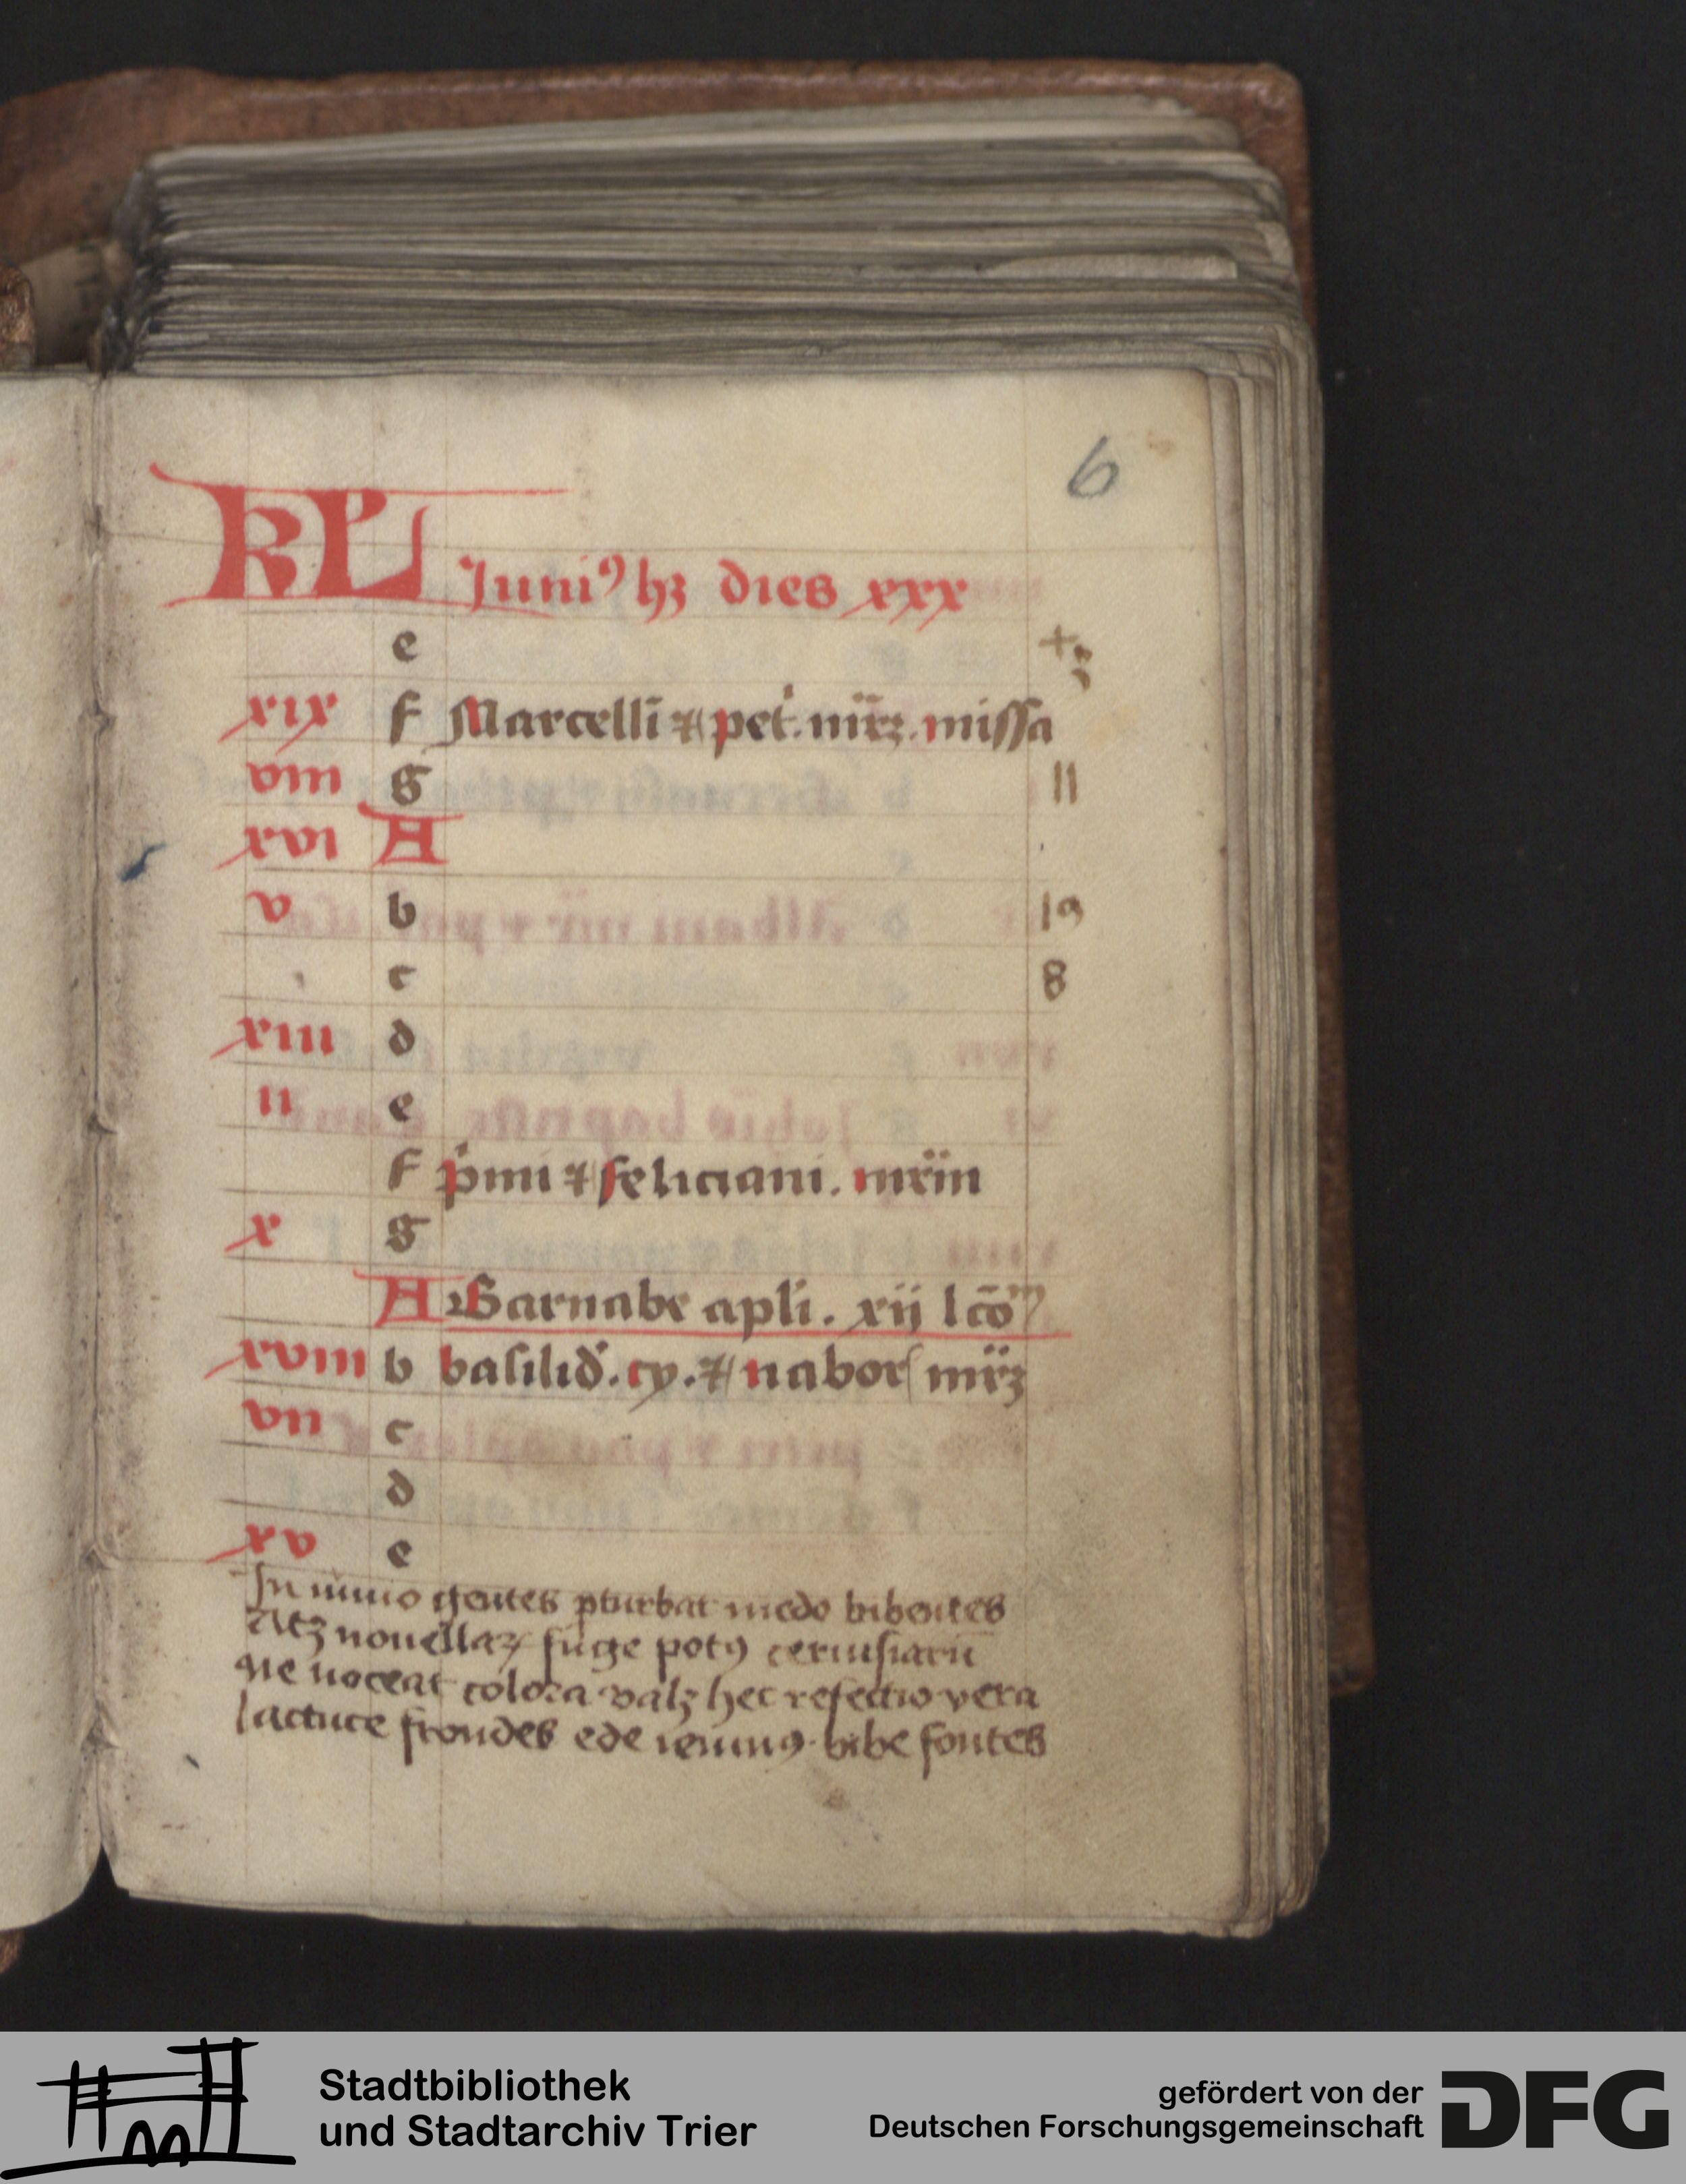 6
KL Juniꝰ hꝫ dies xxx
e +3
xix f Marcelli̅ ⁊ pet᷑. mr̅ꝫ. missa
viii g 11
xvi A
v b 19
c 8
xiii d
ii e
f p̍mi ⁊ feliciani. mr̅m
x g
A Barnabe apl̅i. xij lc̅om̅
xviii b basilid᷑. cy. ⁊ nabor mr̅ꝫ
vii c
d
xv e
In iunio gentes ꝑturbat medo bibentes
Atqꝫ nouellaꝝ fuge potꝰ ceruisiaru̅
Ne noceat colora valꝫ hec refectio vera
lactuce frondes ede ieiunꝰ bibe fontes
Stadtbibliothek
und Stadtarchiv Trier
gefördert von der
Deutschen Forschungsgemeinschaft
DFG